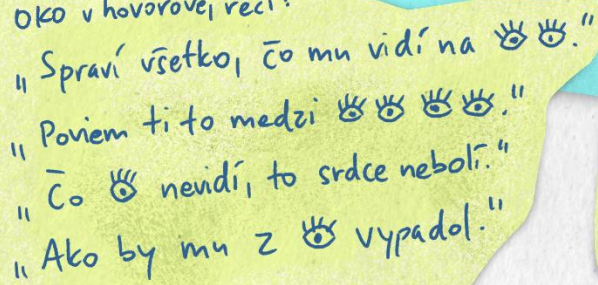 oko v hovorovej reči?
„Spraví všetko, čo mu vidí na 👁👁."
„Poviem ti to medzi 👁👁 👁👁."
„Čo 👁 nevidí, to srdce nebolí."
„Ako by mu z 👁 vypadol."